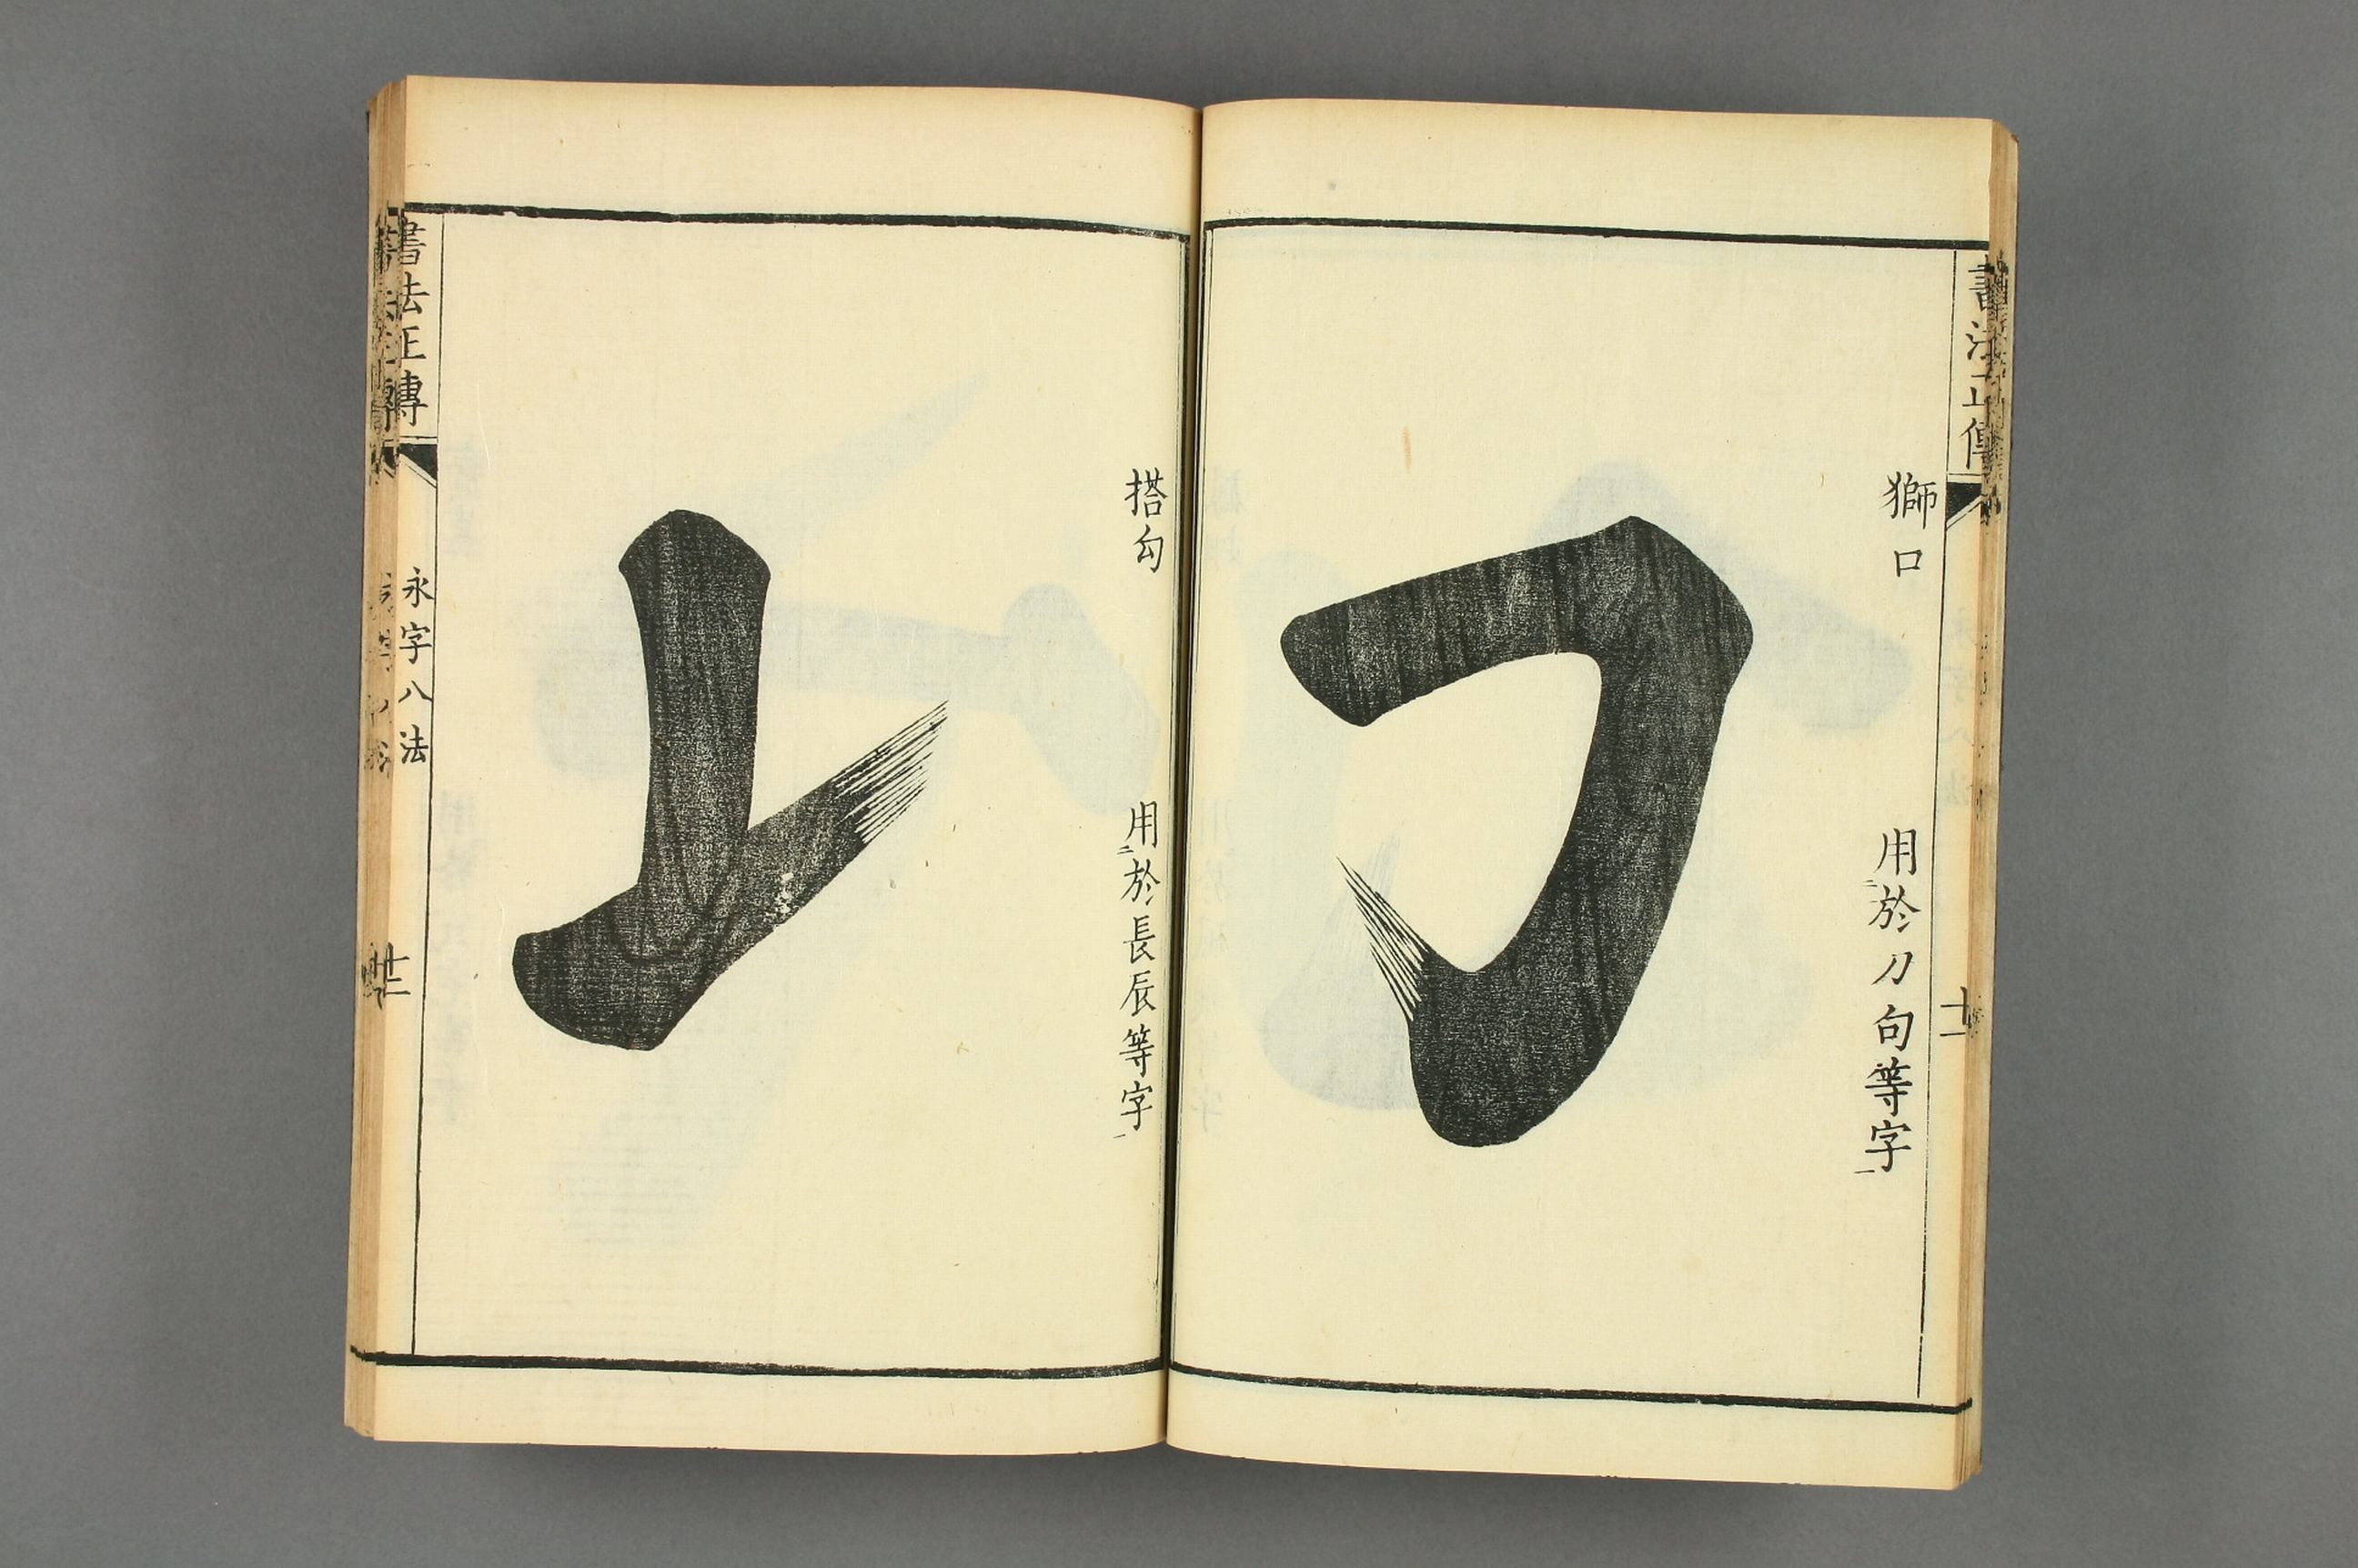 書法正傳
獅口
用於刀句等字
十一
搭勾
用於長辰等字
書法正傳
永字八法
十二